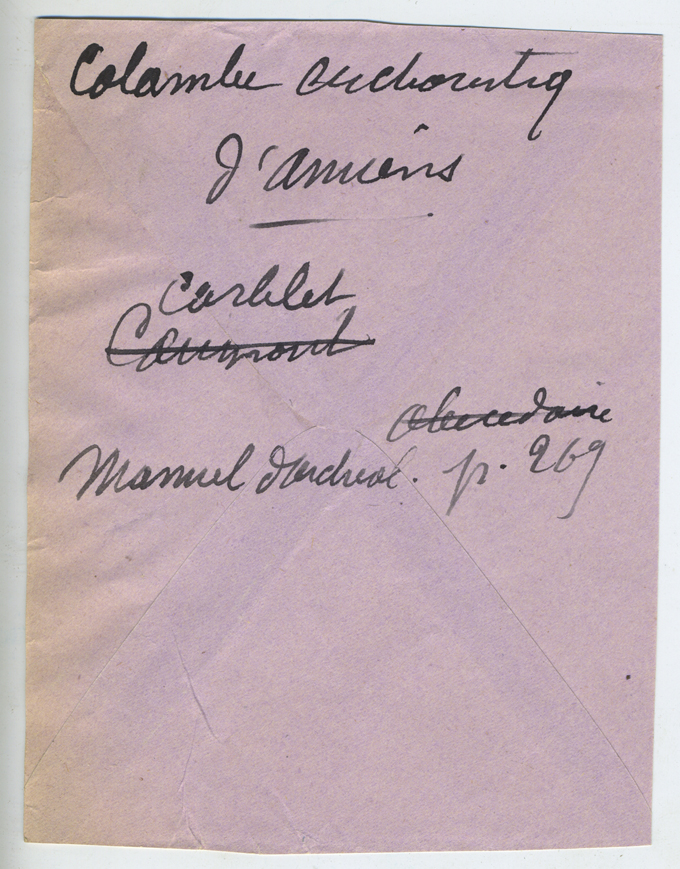 Colambe eucharistiq
d'Amiens
Corblet
Caumont
abecedaire
Manuel d'archeol. p. 269